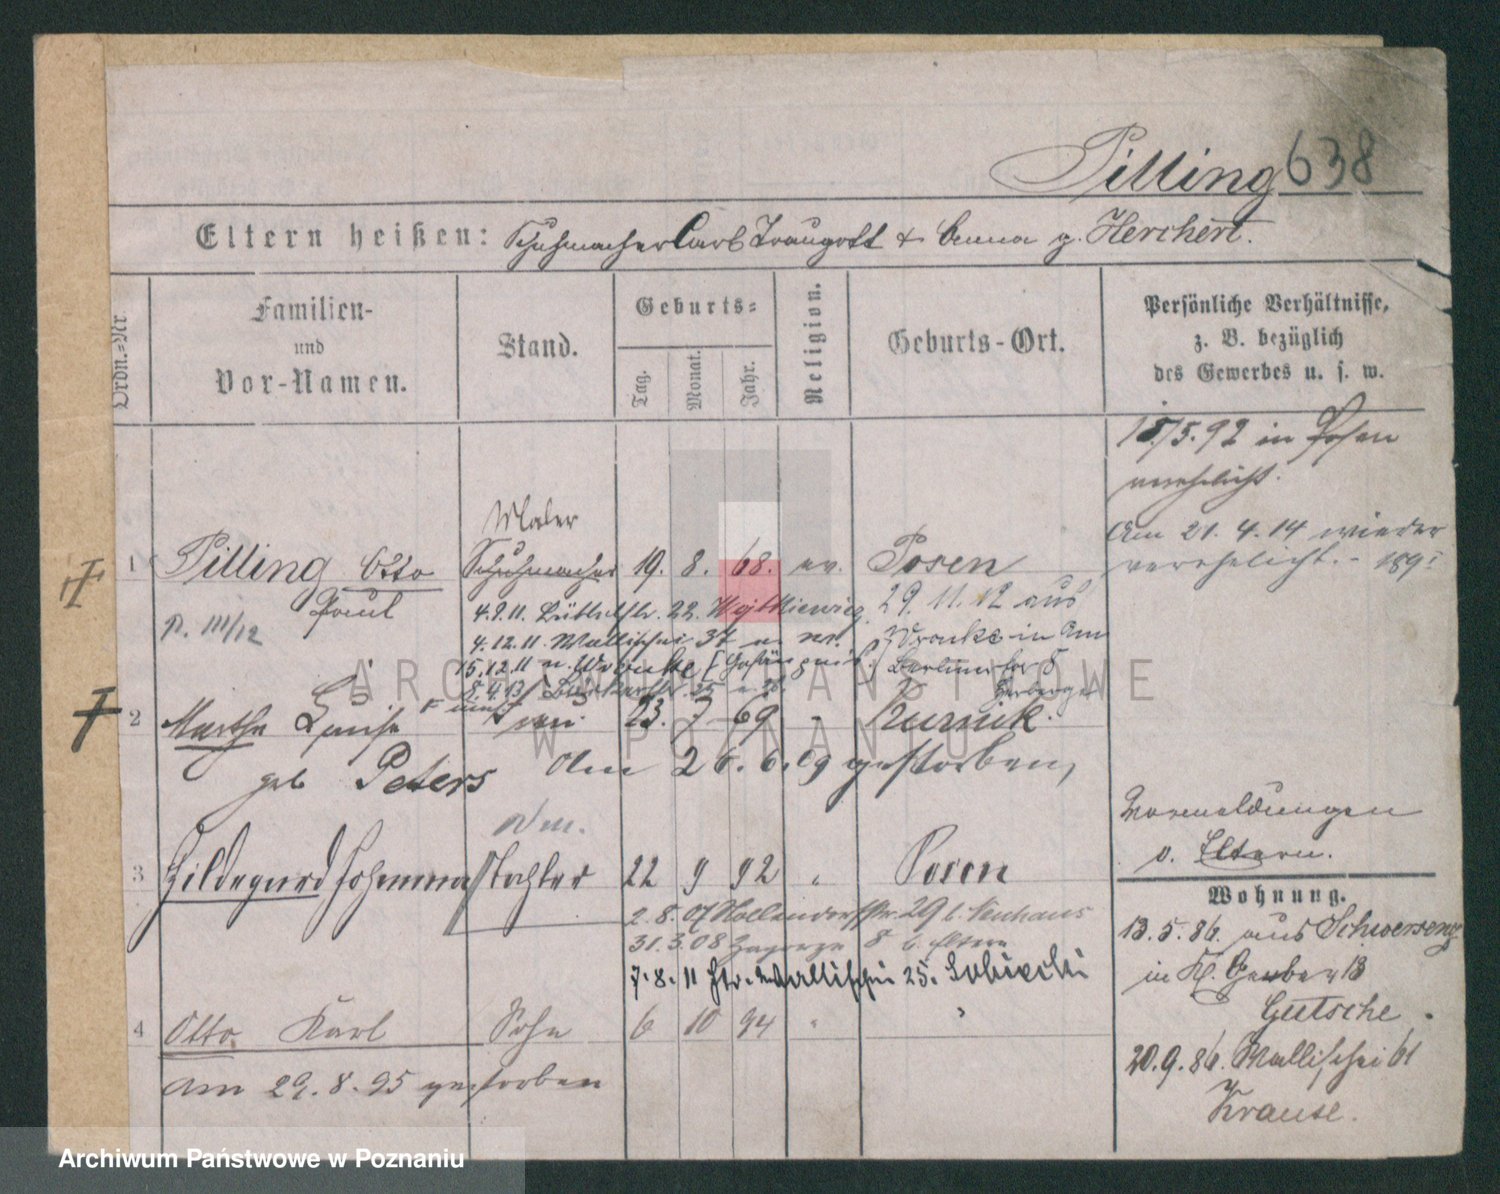 Pilling 638
Eltern heißen: Schuhmacher Carl Traugott & Anna g. Herchert.
Ordn.-Nr
Familien-
und
Vor-Namen.
Stand.
Geburts-
Tag.
Monat.
Jahr.
Religion.
Geburts-Ort.
Persönliche Verhältnisse,
z. B. bezüglich
des Gewerbes u. s. w.
15/5.92 in Posen
verehelicht.
Am 21.4.14 wieder
verehelicht. - 189
Maler
1 Pilling Otto Schuhmacher 19. 8. 68. ev. Posen
Paul
p. III/12
4.9.11. 22.
4.12.11 Wallischei 37
15.12.11 n. Wronke [Gefängnis]
8.4.13
29.11.12 aus
Wronke in Am
Berliner Tor 5
Herberge
2 Martha Luise Frau 23. 7 69 " Kurnik.
geb Peters Am 26.6.09 gestorben,
3 Hildegard Johanna Tochter 22 9 92 " Posen
2.8.07 29 b. Neuhaus
31.3.08 Zagorze 8 b. Eltern
7.8.11 Wallischei 25.
4 Otto Karl Sohn 6 10 94 " "
am 29.8.95 gestorben
Vormeldungen
v. Eltern.
Wohnung.
13.5.86. aus Schwersenz
in Kl. Gerber 13
Gutsche.
20.9.86. Wallischei 61
Krause.
ARCHIWUM PAŃSTWOWE
W POZNANIU
Archiwum Państwowe w Poznaniu